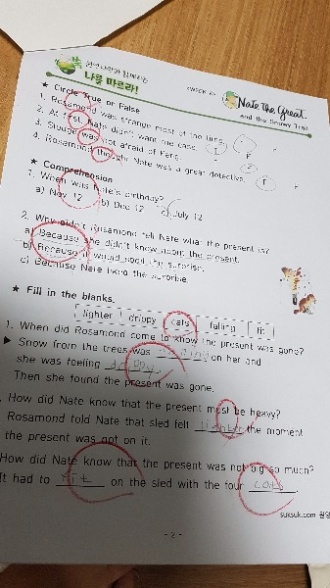 나를 따르라!
Nate the Great
and the Snowy Trail
★ Circle True or False.
1. Rosamond was strange most of the time.
2. At first, Nate didn't want the case.
3. Sludge was not afraid of Fang.
4. Rosamond thought Nate was a great detective.
★ Comprehension
1. When was Nate's birthday?
a) Nov 12 b) Dec 12 c) July 12
2. Why didn't Rosamond tell Nate what the present is?
a) Because she didn't know about the present.
b) Because it would spoil the surprise.
c) Because Nate hated the surprise.
★ Fill in the blanks.
lighter drippy cats falling fit
1. When did Rosamond come to know the present was gone?
▶ Snow from the trees was falling on her and
she was feeling drippy.
Then she found the present was gone.
How did Nate know that the present must be heavy?
Rosamond told Nate that sled felt lighter the moment
the present was not on it.
How did Nate know that the present was not big so much?
It had to fit on the sled with the four cats
suksuk.com
- 2 -